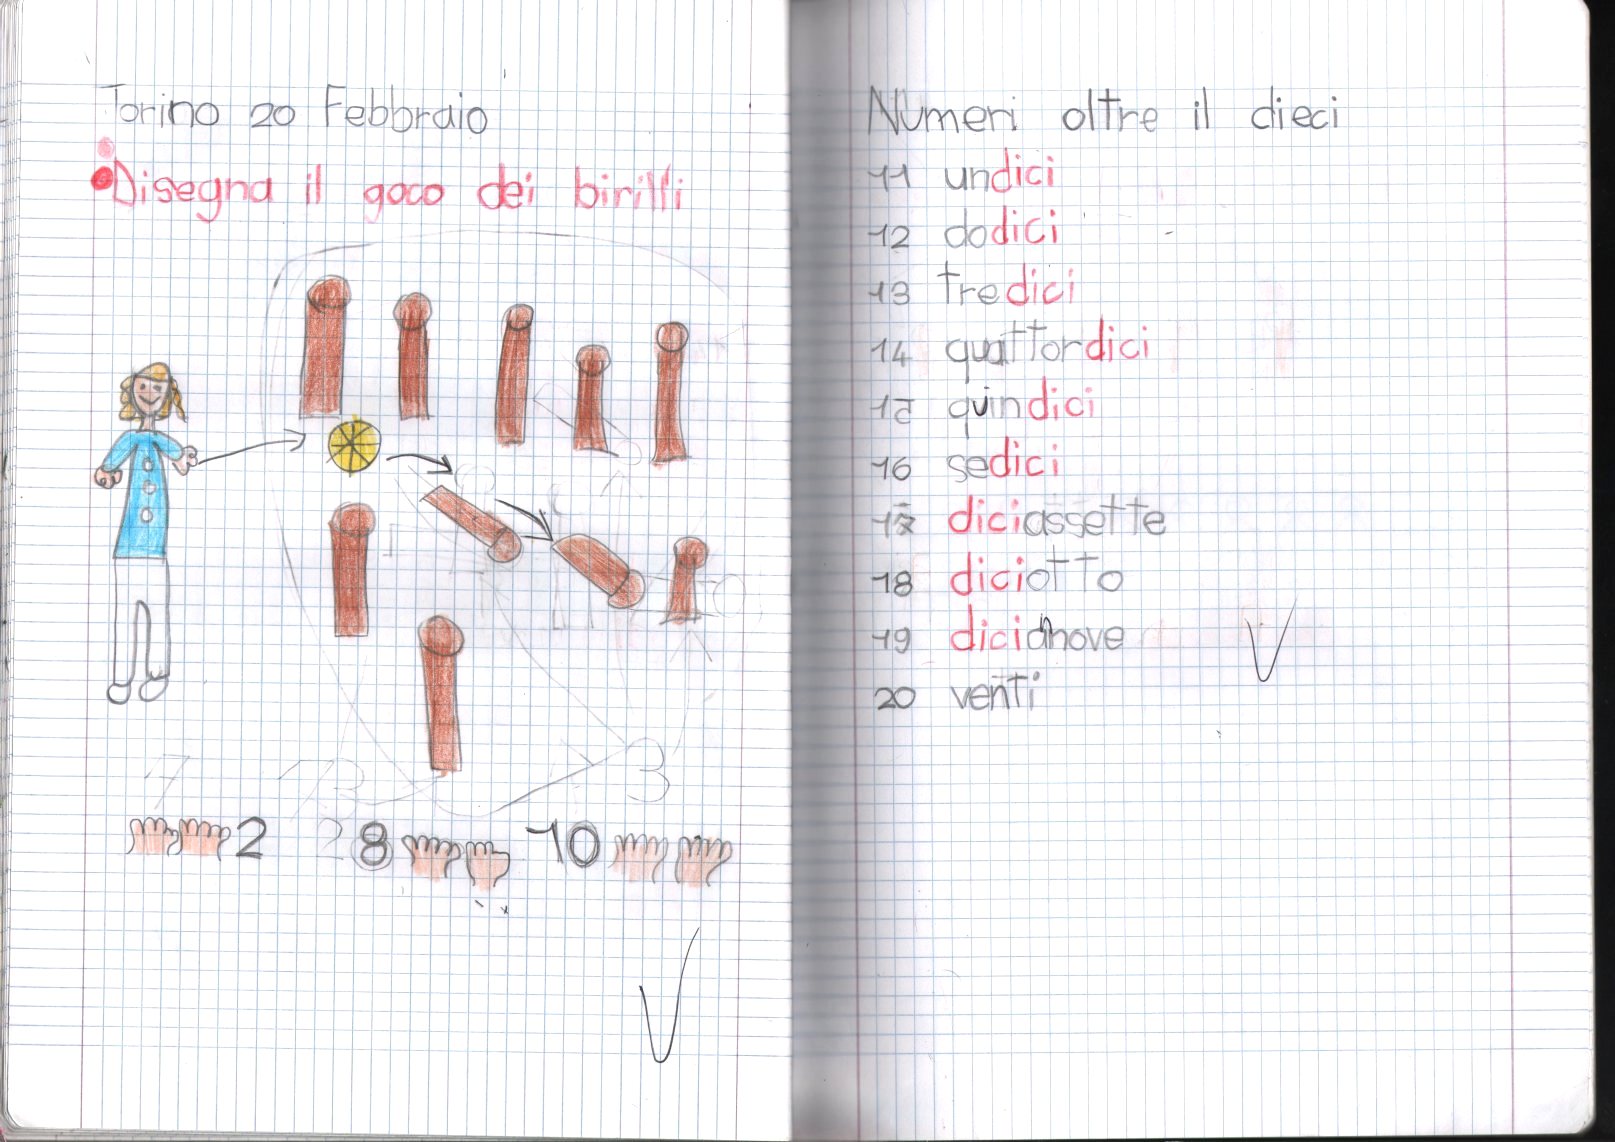 Torino 20 Febbraio
Disegna il goco dei birilli
2 8 10
Numeri oltre il dieci
11 undici
12 dodici
13 tredici
14 quattordici
15 quindici
16 sedici
17 diciassette
18 diciotto
19 dicianove
20 venti